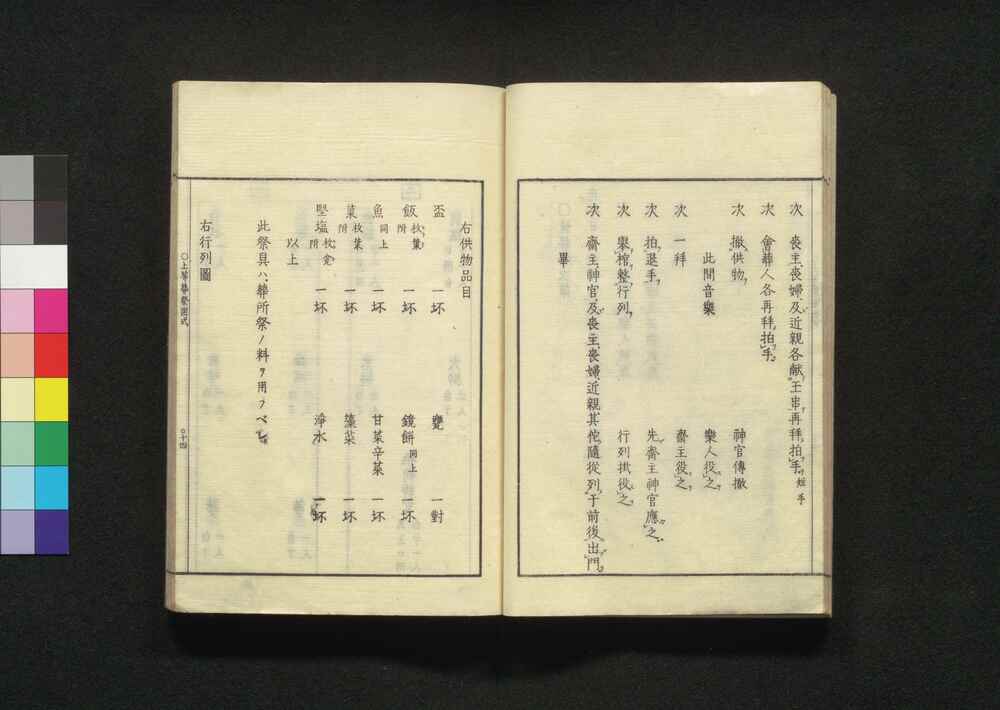 次 喪主、喪婦、及近親各献玉串、再拜、拍手、短手
次 會葬人各再拜、拍手、
次 撤供物、 神官傳撤
此間音樂 樂人役之、
次 一拜 齋主役之、
次 拍退手、 先齋主神官應之、
次 擧棺整行列、 行列掛役之、
次 齋主、神官及喪主、喪婦、近親其佗隨從列于前後出門、
畢
右供物品目
盃 一坏 甕 一對
飯 枚葉附 一坏 鏡餅 同上 一坏
魚 同上 一坏 甘菜辛菜 一坏
菓 枚葉附 一坏 藻菜 一坏
堅塩 枚瓮附 一坏 淨水 一坏
以上
此祭具ハ葬所祭ノ料ヲ用フベし
右行列圖
○上等葬祭圖式 ○十四